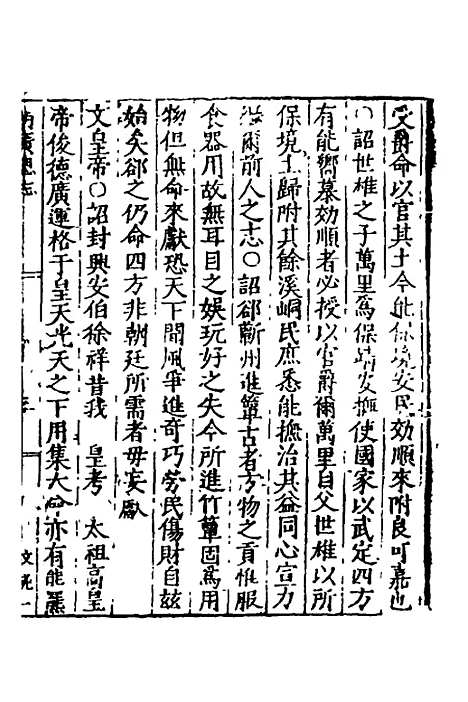 父爵命以官其土今能保境安民効順來附良可嘉也
○詔世雄之子萬里爲保靖安撫使國家以武定四方
有能嚮慕効順者必授以官爵爾萬里自父世雄以所
保境土歸附其餘溪峒民庶悉能撫治其益同心宣力
爾前人之志○詔郤蘄州進簟古者方物之貢惟服
食器用故無耳目之娛玩好之失今所進竹簟固爲用
物但無命來獻恐天下聞風爭進奇巧勞民傷財自兹
始矣郤之仍命四方非朝廷所需者毋妄獻
文皇帝○詔封興安伯徐祥昔我 皇考 太祖高皇
帝俊德廣運格于皇天光天之下用集大命亦有能羆
湖廣總志